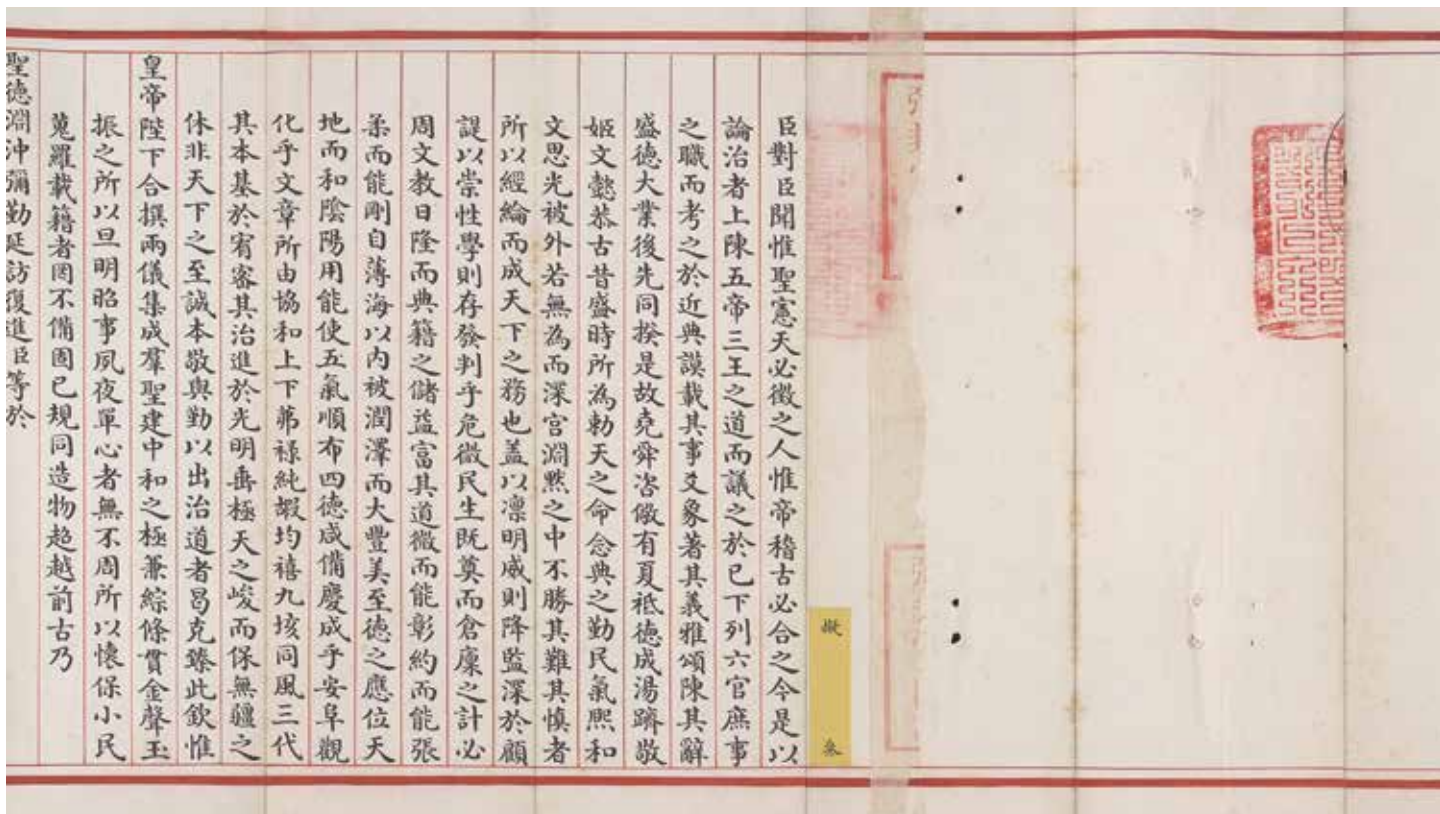 擬
叅
臣對臣聞惟聖憲天必徵之人惟帝稽古必合之今是以
論治者上陳五帝三王之道而議之於已下列六官庶事
之職而考之於近典謨載其事爻象著其義雅頌陳其辭
盛德大業後先同揆是故堯舜咨儆有夏祗德成湯躋敬
姬文懿恭古昔盛時所為勅天之命念典之勤民氣熙和
文思光被外若無為而深宮淵默之中不勝其難其慎者
所以經綸而成天下之務也葢以凛明威則降監深於顧
諟以崇性學則存發判乎危微民生既奠而倉廩之計必
周文教日隆而典籍之儲益富其道微而能彰約而能張
柔而能剛自薄海以內被潤澤而大豐美至德之應位天
地而和陰陽用能使五氣順布四德咸備慶成乎安阜觀
化乎文章所由協和上下茀祿純嘏均禧九垓同風三代
其本基於宥密其治進於光明垂極天之峻而保無疆之
休非天下之至誠本敬與勤以出治道者曷克臻此欽惟
皇帝陛下合撰兩儀集成羣聖建中和之極兼綜條貫金聲玉
振之所以旦明昭事夙夜單心者無不周所以懷保小民
蒐羅載籍者罔不備固已規同造物超越前古乃
聖德淵沖彌勤延訪復進臣等於